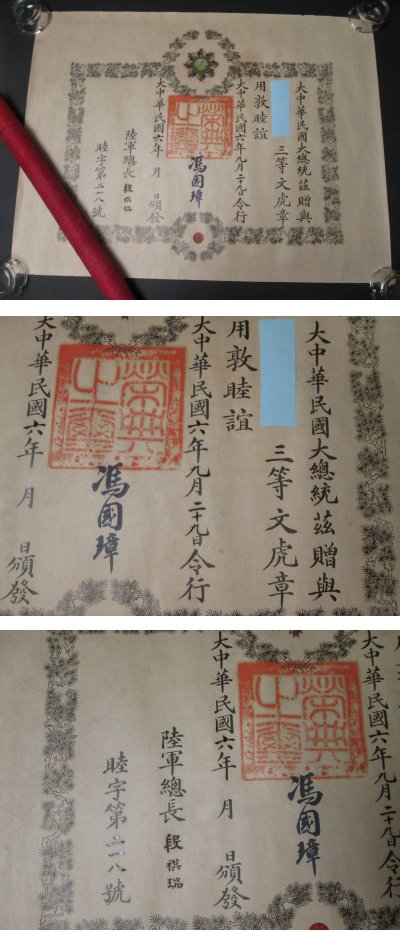 大中華民國大總統茲贈與
三等文虎章
用敦睦誼
大中華民國六年九月二十九日令行
榮典之璽
馮國璋
大中華民國六年 月 日頒發
陸軍總長 段祺瑞
睦字第二一八號
大中華民國大總統茲贈與
三等文虎章
用敦睦誼
大中華民國六年九月二十九日令行
榮典之璽
馮國璋
大中華民國六年 月 日頒發
大中華民國六年九月二十九日
榮典之璽
馮國璋
大中華民國六年 月 日頒發
陸軍總長 段祺瑞
睦字第二一八號